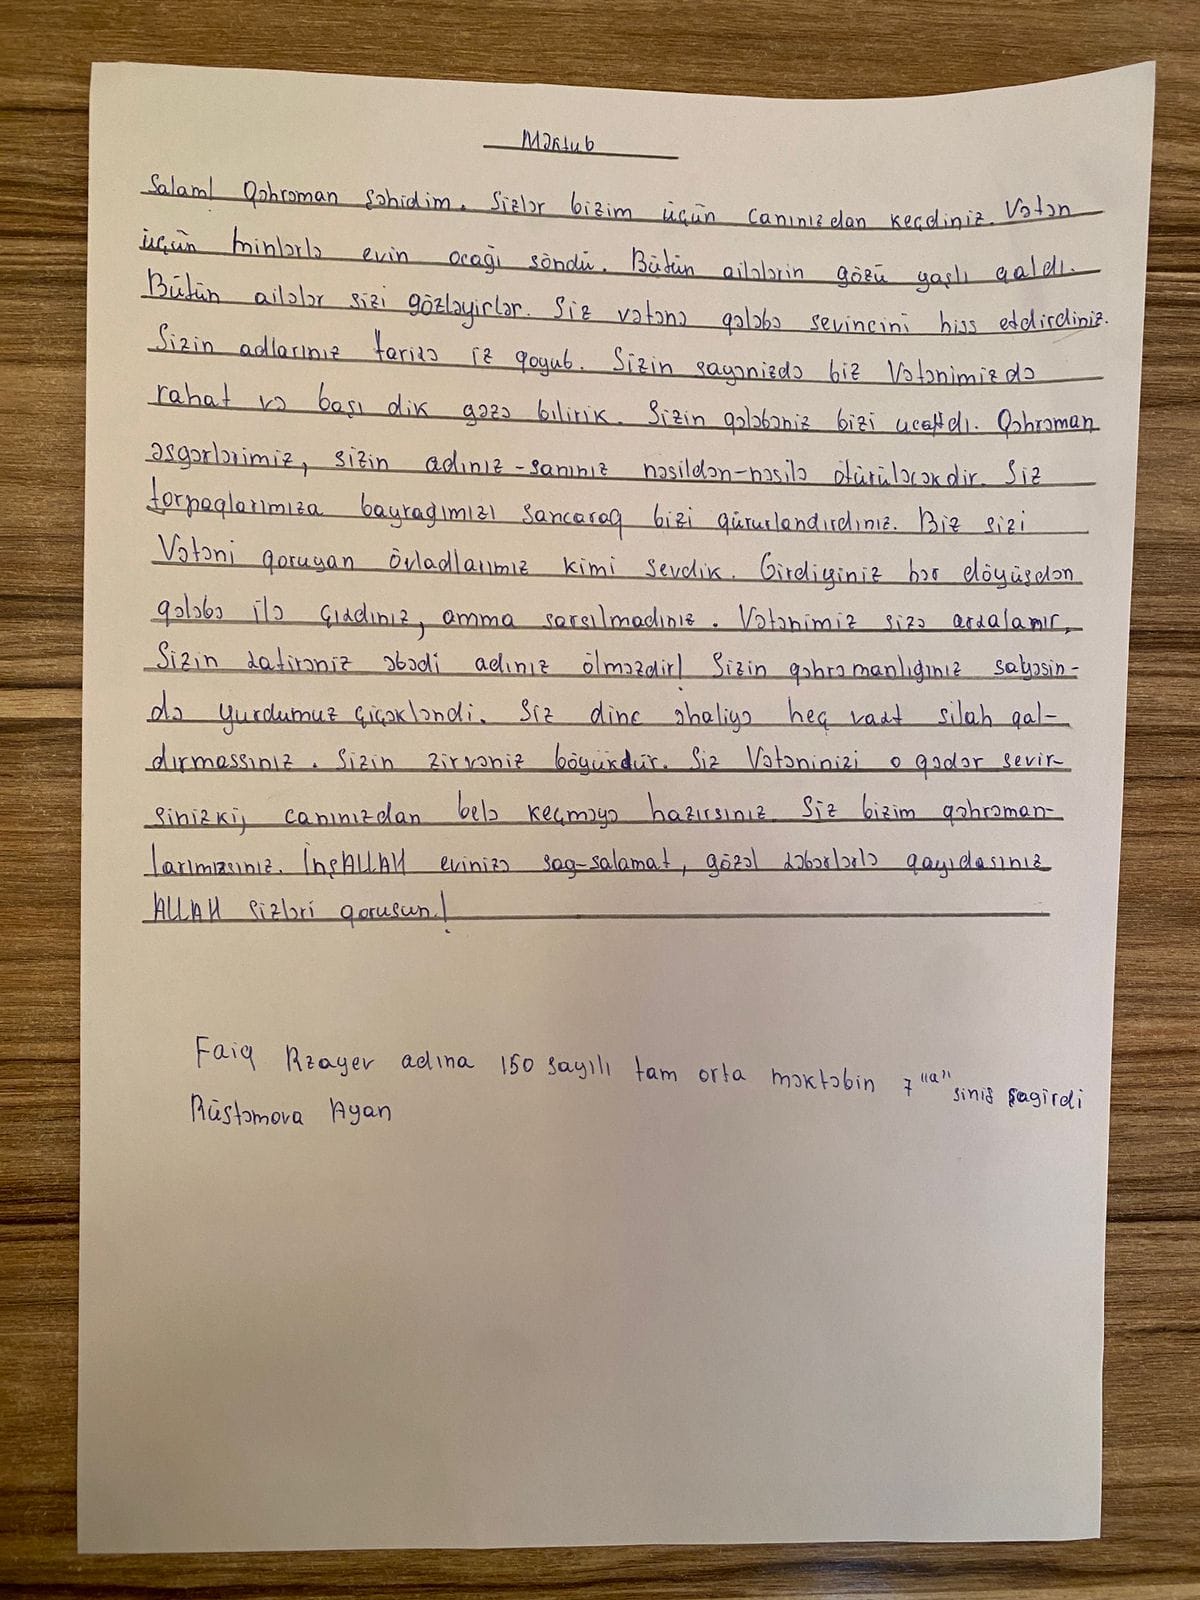 Məktub
Salam! Qəhrəman şəhidim. Sizlər bizim üçün canınızdan keçdiniz. Vətən
üçün minlərlə evin ocağı söndü. Bütün ailələrin gözü yaşlı qaldı.
Bütün ailələr sizi gözləyirlər. Siz vətənə qələbə sevincini hiss etdirdiniz.
Sizin adlarınız tarixə iz qoyub. Sizin sayənizdə biz Vətənimizdə
rahat və başı dik gəzə bilirik. Sizin qələbəniz bizi ucaltdı. Qəhrəman
əsgərlərimiz, sizin adınız-sanınız nəsildən-nəsilə ötürüləcəkdir. Siz
torpaqlarımıza bayrağımızı sancaraq bizi qürurlandırdınız. Biz sizi
Vətəni qoruyan övladlarımız kimi sevdik. Girdiyiniz hər döyüşdən
qələbə ilə çıxdınız, amma sarsılmadınız. Vətənimiz sizə arxalanır,
Sizin xatirəniz əbədi adınız ölməzdir! Sizin qəhrəmanlığınız sayəsin-
də yurdumuz çiçəkləndi. Siz dinc əhaliyə heç vaxt silah qal-
dırmassınız. Sizin zirvəniz böyükdür. Siz Vətəninizi o qədər sevir-
sinizki, canınızdan belə keçməyə hazırsınız. Siz bizim qəhrəman-
larımızsınız. İnşALLAH evinizə sag-salamat, gözəl xəbərlərlə qayıdasınız
ALLAH sizləri qorusun!
Faiq Rzayev adına 150 sayılı tam orta məktəbin 7 "a" sinif şagirdi
Rüstəmova Ayan